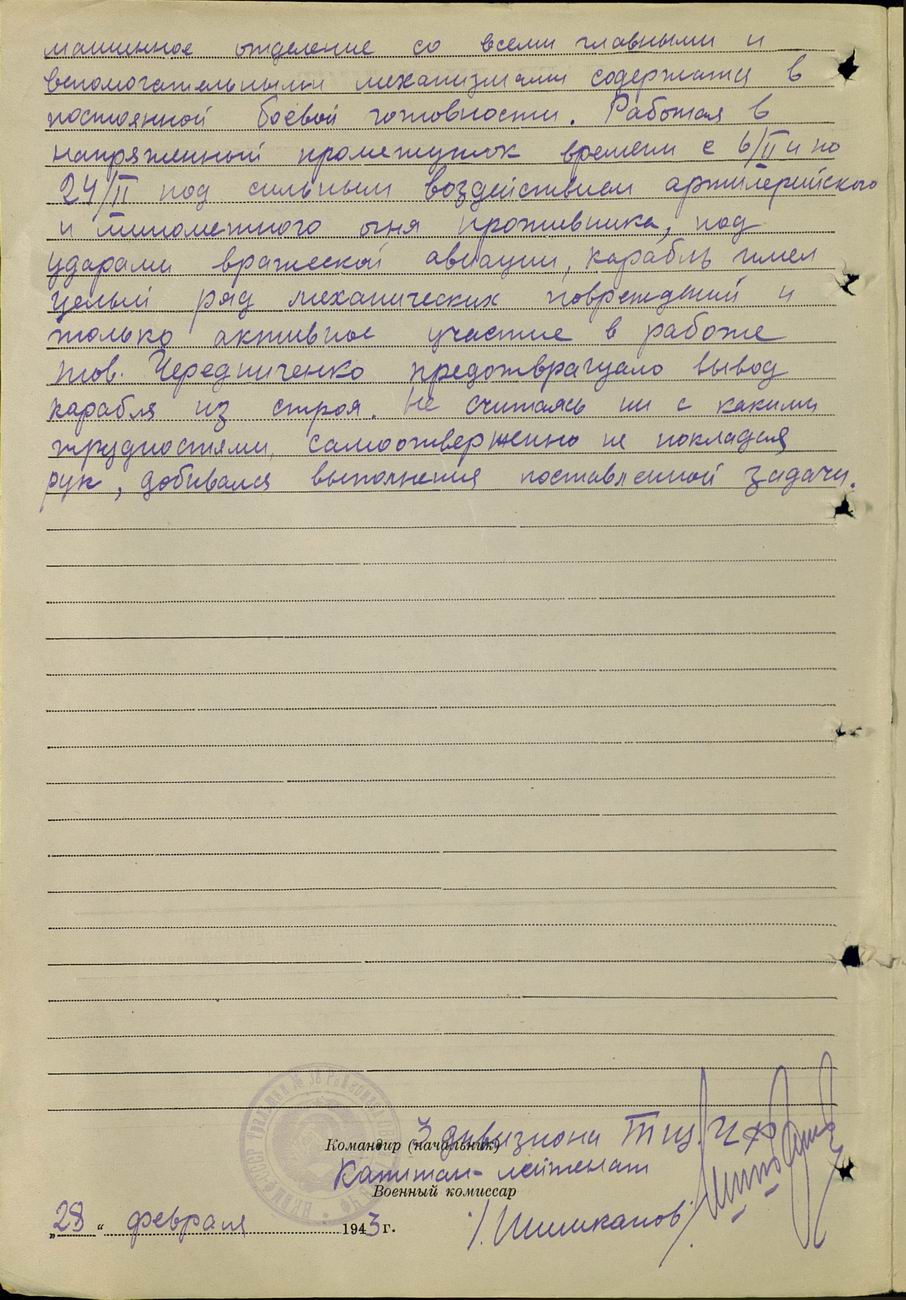 машинное отделение со всеми главными и
вспомогательными механизмами содержатся в
постоянной боевой готовности. Работая в
напряженный промежуток времени с 6/II и по
24/II под сильным воздействием артилерийского
и минометного огня противника, под
ударами вражеской авиации, карабль имел
целый ряд механических повреждений и
только активное участие в работе
тов. Чередниченко предотвращало вывод
карабля из строя. Не считаясь ни с какими
трудностями, самоотверженно не покладая
рук, добивался выполнения поставленной задачи.
Командир (начальник) 3 дивизиона ТЩ. ЧФ
Капитан-лейтенант
Военный комиссар
/Шишканов/
„28“ февраля 1943 г.